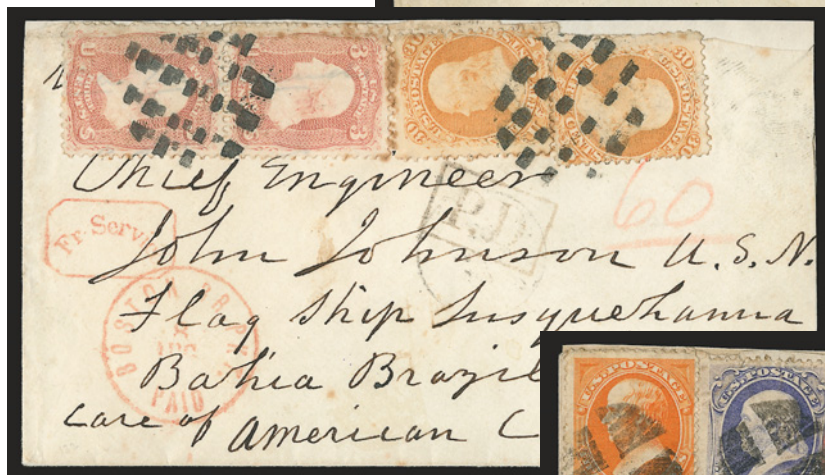 30 30
U.S. POSTAGE
3 3
30 30
Chief Engineer
60
P.D.
Fr. Servi
John Johnson U.S.N.
Flag Ship Susquehanna
BOSTON BR. PK
PAID
Bahia Brazil
Care of American C
U.S. POSTAGE
U.S. POSTAGE